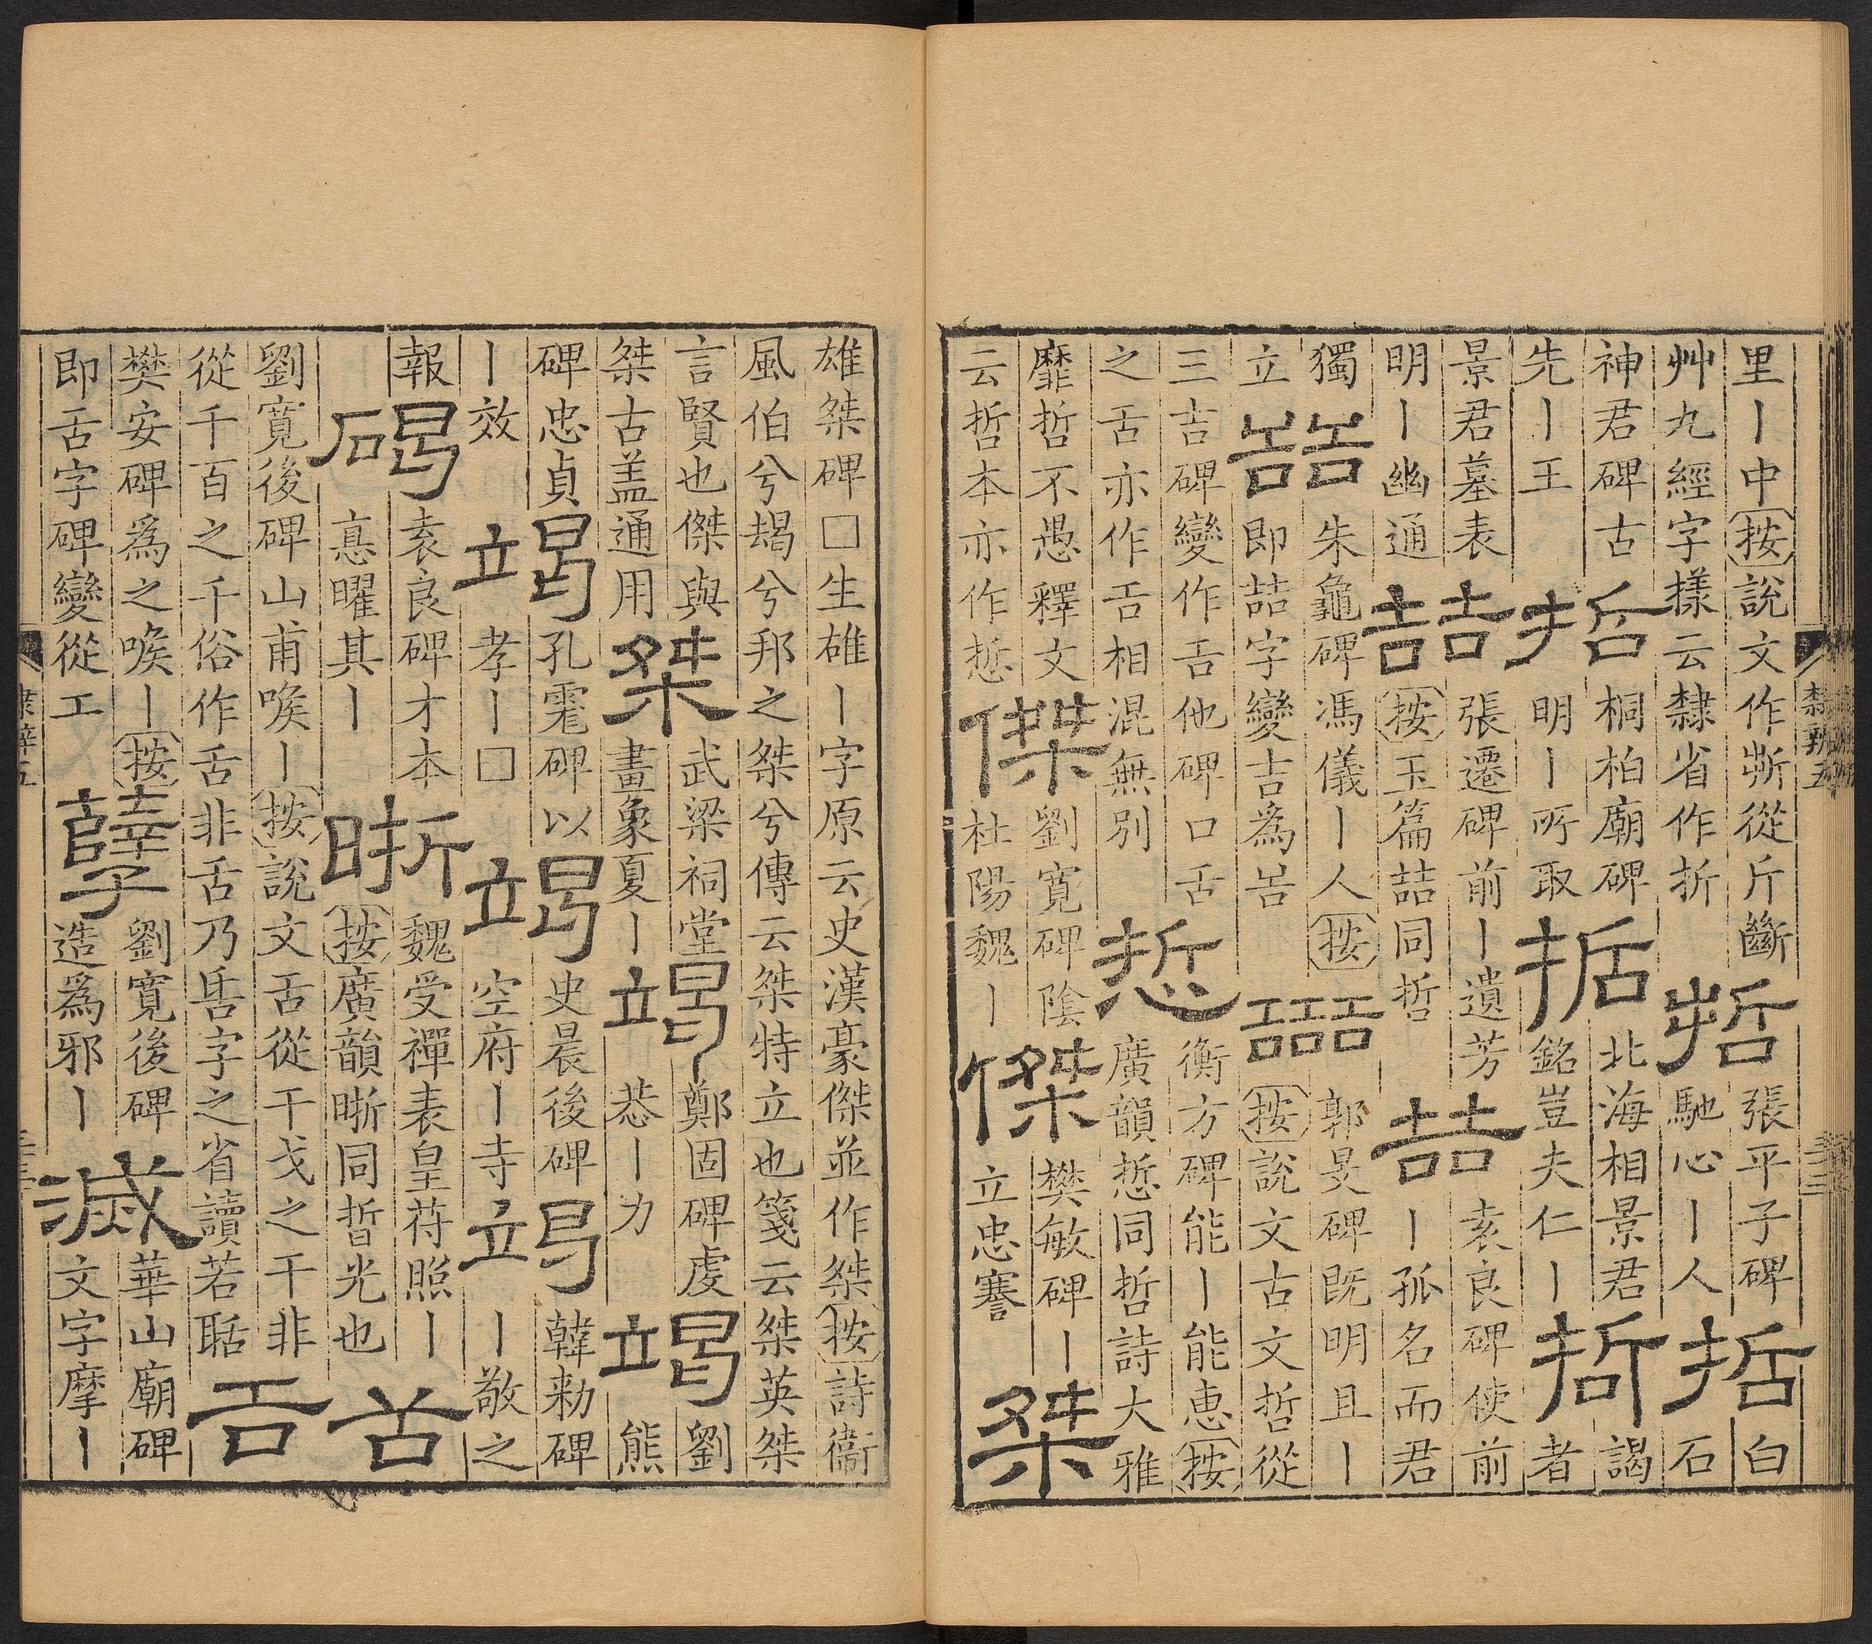 里丨中按說文作𣂚從斤斷
艸九經字㨾云隸省作折
哲
張平子碑
馳心丨人
哲
白
石
神君碑古
先丨王
哲
桐柏廟碑
明丨所取
哲
北海相景君
銘豈夫仁丨
哲
謁
者
景君墓表
明丨幽通
喆
張遷碑前丨遺芳
按玉篇喆同哲
喆
袁良碑使前
丨孤名而君
獨
立
喆
朱龜碑馮儀丨人按
即喆字變吉爲𠮷
嚞
郭旻碑既明且丨
按說文古文哲從
三吉碑變作𠮷他碑口舌
之舌亦作𠮷相混無別
悊
衡方碑能丨能惠按
廣韻悊同哲詩大雅
靡哲不愚釋文
云哲本亦作悊
傑
劉寬碑陰
杜陽魏丨
傑
樊敏碑丨
立忠謇
桀
隸辨五
雄桀碑□生雄丨字原云史漢豪傑並作桀按詩衞
風伯兮朅兮邦之桀兮傳云桀特立也箋云桀英桀
言賢也傑與
桀古盖通用
桀
武梁祠堂
畫象夏丨
竭
鄭固碑虔
恭丨力
竭
劉
熊
碑忠貞
丨效
竭
孔霮碑以
孝丨□
竭
史晨後碑
空府丨寺
竭
韓勑碑
丨敬之
報
碣
袁良碑才本
悳曜其丨
晣
魏受禪表皇苻照丨
按廣韻晣同晢光也
舌
劉寬後碑山甫喉丨按說文舌從干戈之干非
從千百之千俗作舌非舌乃𠯑字之省讀若聒
舌
樊安碑爲之喉丨按
即舌字碑變從工
孽
劉寬後碑
造爲邪丨
滅
華山廟碑
文字摩丨